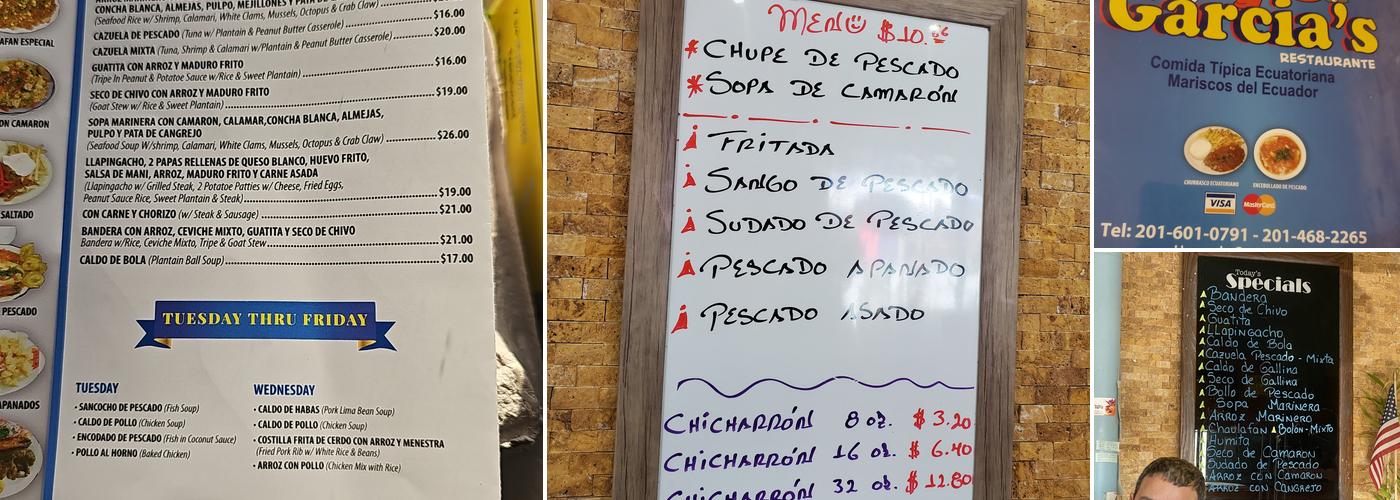 CONCHA BLANCA, ALMEJAS, PULPO, MEJILLONES Y PATA DE
(Seafood Rice w/ Shrimp, Calamari, White Clams, Mussels, Octopus & Crab Claw)
$16.00
CAZUELA DE PESCADO (Tuna w/ Plantain & Peanut Butter Casserole)
$20.00
CAZUELA MIXTA (Tuna, Shrimp & Calamari w/Plantain & Peanut Butter Casserole)
GUATITA CON ARROZ Y MADURO FRITO
(Tripe In Peanut & Potatoe Sauce w/Rice & Sweet Plantain) $16.00
SECO DE CHIVO CON ARROZ Y MADURO FRITO
(Goat Stew w/ Rice & Sweet Plantain) $19.00
SOPA MARINERA CON CAMARON, CALAMAR,CONCHA BLANCA, ALMEJAS,
PULPO Y PATA DE CANGREJO
(Seafood Soup W/shrimp, Calamari, White Clams, Mussels, Octopus & Crab Claw) $26.00
LLAPINGACHO, 2 PAPAS RELLENAS DE QUESO BLANCO, HUEVO FRITO,
SALSA DE MANI, ARROZ, MADURO FRITO Y CARNE ASADA
(Llapingacho w/ Grilled Steak, 2 Potatoe Patties w/ Cheese, Fried Eggs,
Peanut Sauce Rice, Sweet Plantain & Steak) $19.00
CON CARNE Y CHORIZO (w/ Steak & Sausage) $21.00
BANDERA CON ARROZ, CEVICHE MIXTO, GUATITA Y SECO DE CHIVO
Bandera w/Rice, Ceviche Mixto, Tripe & Goat Stew $21.00
CALDO DE BOLA (Plantain Ball Soup) $17.00
AFAN ESPECIAL
ON CAMARON
SALTADO
PESCADO
APANADOS
TUESDAY THRU FRIDAY
TUESDAY
• SANCOCHO DE PESCADO (Fish Soup)
• CALDO DE POLLO (Chicken Soup)
• ENCODADO DE PESCADO (Fish in Coconut Sauce)
• POLLO AL HORNO (Baked Chicken)
WEDNESDAY
• CALDO DE HABAS (Pork Lima Bean Soup)
• CALDO DE POLLO (Chicken Soup)
• COSTILLA FRITA DE CERDO CON ARROZ Y MENESTRA
(Fried Pork Rib w/ White Rice & Beans)
• ARROZ CON POLLO (Chicken Mix with Rice)
MENU $10.
* CHUPE DE PESCADO
* SOPA DE CAMARÓN
FRITADA
SANGO DE PESCADO
SUDADO DE PESCADO
PESCADO APANADO
PESCADO ASADO
CHICHARRÓN 8 oz. $ 3.20
CHICHARRÓN 16 oz. $ 6.40
CHICHARRÓN 32 oz. $ 12.80
Garcia's
RESTAURANTE
Comida Típica Ecuatoriana
Mariscos del Ecuador
CHURRASCO ECUATORIANO
ENCEBOLLADO DE PESCADO
VISA
MasterCard
Tel: 201-601-0791 - 201-468-2265
Today's
Specials
Bandera
Seco de Chivo
Guatita
LLapingacho
Caldo de Bola
Cazuela Pescado - Mixta
Caldo de Gallina
Seco de Gallina
Bollo de Pescado
Sopa Marinera
Arroz Marinera
Chaulafan Bolon-Mixto
Humita
Seco de Camaron
Sudado de Pescado
Arroz con Camaron
Arroz con Cangrejo